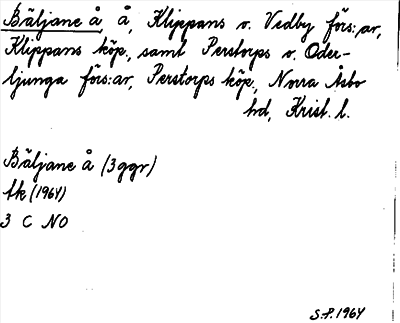 Bäljane å, å, Klippans o. Vedby förs:ar,
Klippans köp., samt Perstorps o. Oder-
ljunga förs:ar, Perstorps köp., Norra Åsbo
hd, Krist. l.
Bäljane å (3 ggr)
tk (1964)
3 C NO
S.P. 1964